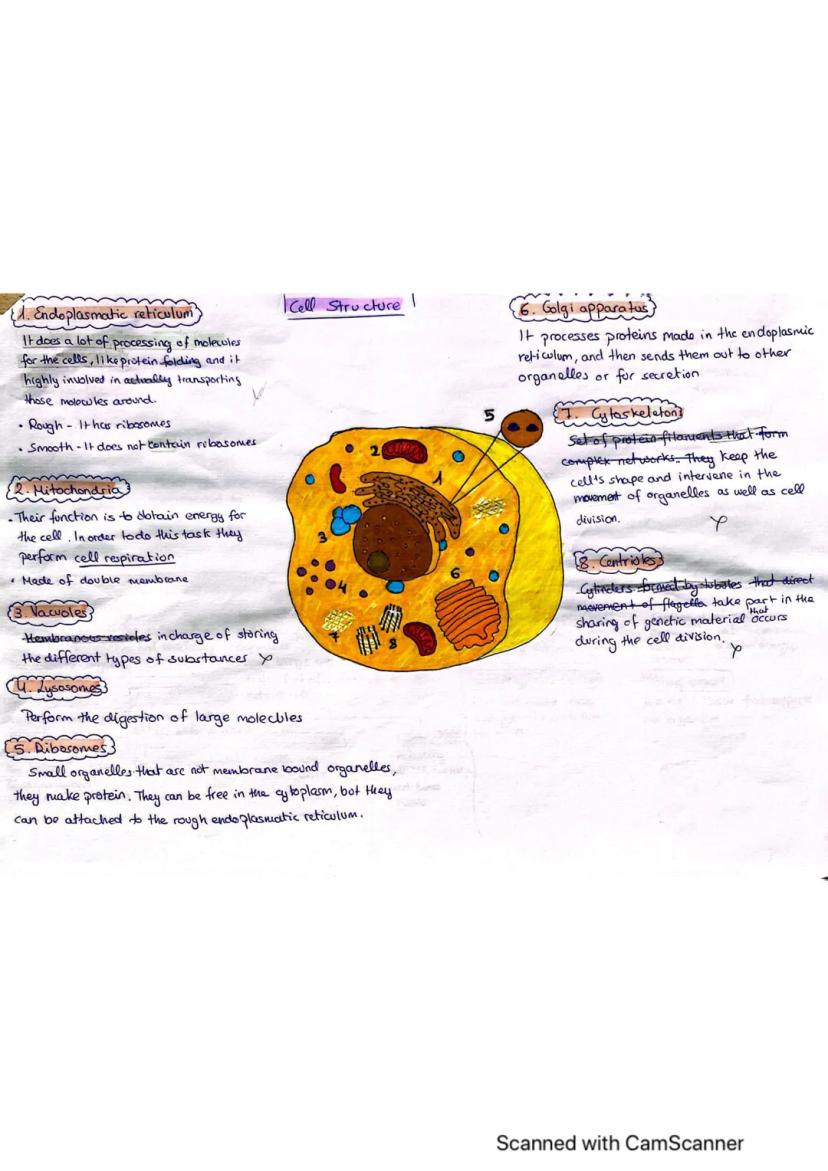 Cell Structure
1. Endoplasmatic reticulum
It does a lot of processing of molecules
for the cells, like protein folding and it
highly involved in actually transporting
those molecules around.
• Rough - It has ribosomes
• Smooth - It does not contain ribosomes
2. Mitochondria
• Their function is to obtain energy for
the cell. In order to do this task they
perform cell respiration
• Made of double membrane
3. Vacuoles
Membranous vesicles in charge of storing
the different types of substances
4. Lysosomes
Perform the digestion of large molecbles
5. Ribosomes
Small organelles that are not membrane bound organelles,
they make protein. They can be free in the cytoplasm, but they
can be attached to the rough endoplasmatic reticulum.
5
2
1
3
4
6
7
8
6. Golgi apparatus
It processes proteins made in the endoplasmic
reticulum, and then sends them out to other
organelles or for secretion
7. Cytoskeleton
Set of protein filaments that form
complex networks. They keep the
cell's shape and intervene in the
movement of organelles as well as cell
division.
8. Centrioles
Cylinders formed by tubules that direct
movement of flagella take part in the
sharing of genetic material that occurs
during the cell division.
Scanned with CamScanner